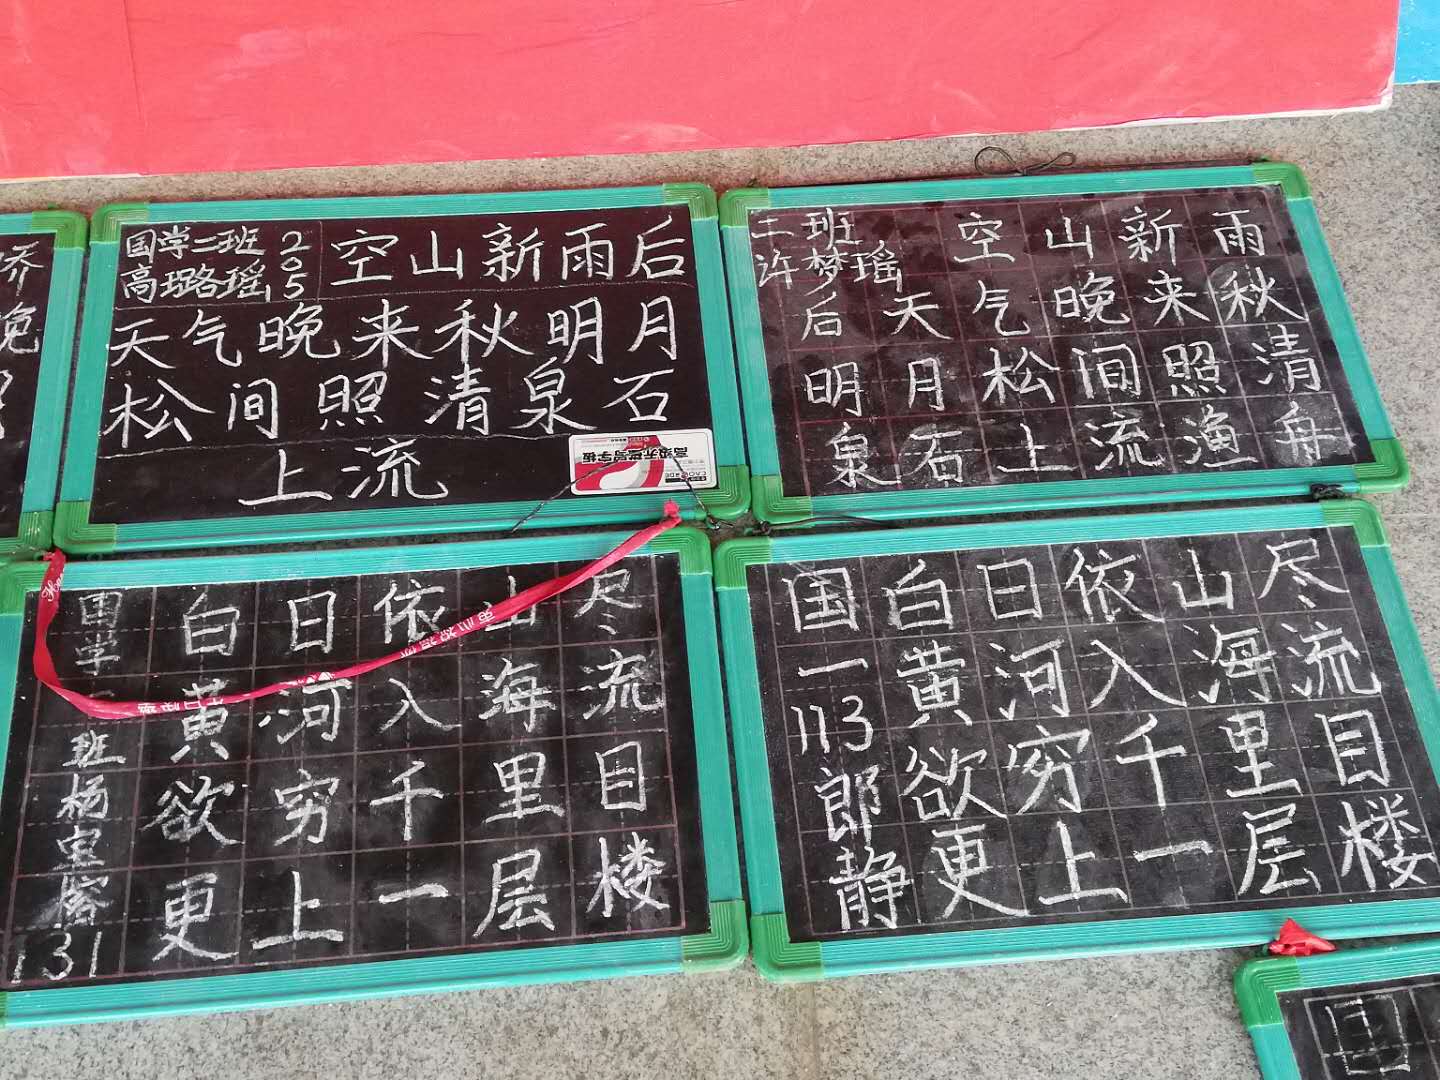 乔
晚
国学二班 205
高珞路瑶
空山新雨后
天气晚来秋明月
松间照清泉石
上流
高梁无尘写字板
二班
许梦瑶
空山新雨
后天气晚来秋
明月松间照清
泉石上流渔舟
国学一班杨宝榕131
白日依山尽
黄河入海流
欲穷千里目
更上一层楼
国一113郎静
白日依山尽
黄河入海流
欲穷千里目
更上一层楼
国